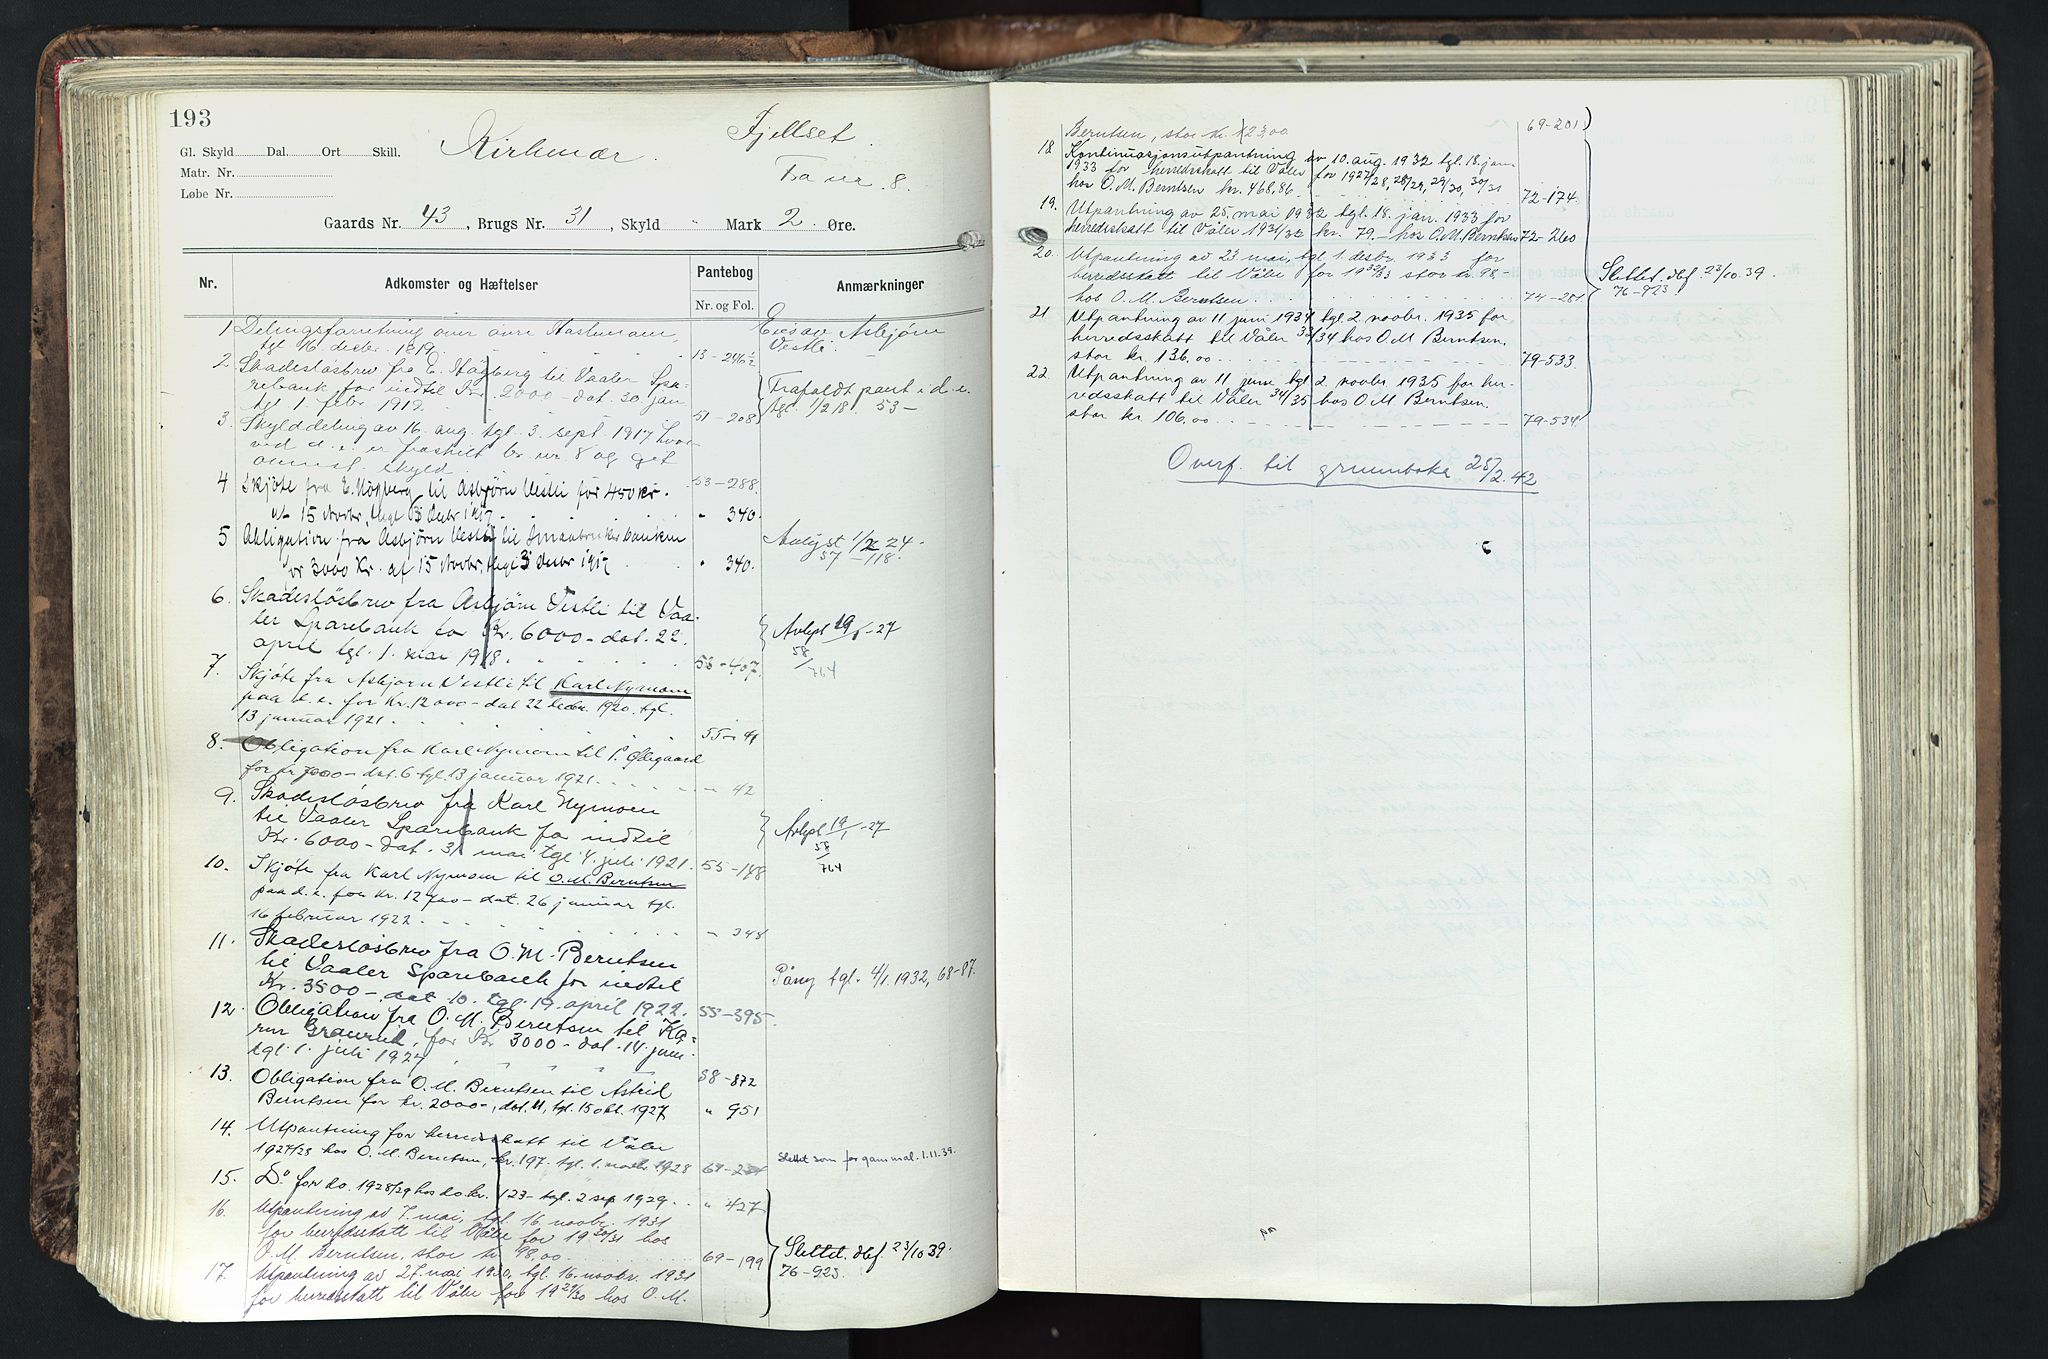 193
Kirkenær.
Fjellset.
Fra nr. 8.
Gl. Skyld Dal. Ort Skill.
Matr. Nr.
Løbe Nr.
Gaards Nr. 43, Brugs Nr. 31, Skyld " Mark 2 Øre.
Nr. Adkomster og Hæftelser Pantebog Nr. og Fol. Anmærkninger
1 Delingsforretning over
tgl 16 desbr. 1819. 13-246½
Eies av Asbjørn
Vestli.
2. Skadesløsbrev fra E. Høgberg til Vaaler Spa-
rebank for indtil Kr. 2000 - dat. 30 jan
tgl 1. febr. 1912. 51-208
Frafaldt pant i d. e.
tgl. 1/2 18. 53-
3. Skylddeling av 16. aug. tgl. 3. sept. 1917 hvor-
ved d. e. er fraskilt br nr. 8 og
skyld. 53-288.
4 Skjøte fra E. Høgberg til Asbjørn Vestli for 450 kr.
15 Novbr, tgl 3 Decbr 1917 " 340.
5 Obligation fra Asbjørn Vestli til Smaabrukerbanken
for 3000 Kr. af 15 Novbr, tgl 3 Decbr 1917 " 340.
Avlyst 1/2 24.
57-118.
6. Skadesløsbrev fra Asbjørn Vestli til Vaa-
ler Sparebank for Kr. 6000 - dat. 22.
april tgl. 1. mai 1918. 53-407.
Avlyst 19/1-27
58/764
7. Skjøte fra Asbjørn Vestli til Karl Nymoen
paa d. e. for Kr. 12 000 - dat 22 decbr. 1920. tgl.
13 januar 1921. 55-41
8. Obligation fra Karl Nymoen til P. Ødegaard
for kr 7000 - dat. 6 tgl. 13 januar 1921. " 42
9. Skadesløsbrev fra Karl Nymoen
til Vaaler Sparebank for indtil
Kr. 6000 - dat. 31 mai tgl 4. juli 1921. 55-148
Avlyst 19/1-27
58/764
10. Skjøte fra Karl Nymoen til O. M. Berntsen
paa d. e. for Kr. 12 700 - dat. 26 januar tgl.
16 februar 1922. " 348
11. Skadesløsbrev fra O. M. Berntsen
til Vaaler Sparebank for indtil
Kr. 3500 - dat 10. tgl. 19. april 1922. 55-395.
Påny tgl. 4/1. 1932, 68-87.
12. Obligation fra O. M. Berntsen til Ka-
ren for Kr 3000 - dat. 14. juni
tgl. 1. juli 1927 58-872
13. Obligation fra O. M. Berntsen til Astrid
Berntsen for kr. 2000-, dat. 11, tgl. 15 okt. 1927 " 951
14. Utpantning for herredsskatt til Våler
1927/28 hos O. M. Berntsen, kr. 197. tgl. 1. novbr 1928
Slettet som for gammal. 1.11.39.
15. Do for do. 1928/29 hos do kr. 123- tgl. 2 sep 1929. " 427
16. Utpantning av 7. mai, tgl. 16. novbr. 1931
for herredsskatt til Våler for 1930/31 hos
O. M. Berntsen, stor kr 98,00 69-199
Slettet. dbf. 23/10 39.
76-923.
17. Utpantning av 27. mai 1930, tgl. 16. novbr. 1931
for herredsskatt til Våler for 1929/30 hos O. M.
Berntsen, stor kr. 123,00 69-201
18 Kontinuasjonsutpantning av 10. aug. 1932 tgl. 18. jan.
1933 for herredsskatt til Våler for 1927/28, 28/29, 29/30, 30/31
hos O. M. Berntsen kr. 468,86 72-174
19. Utpantning av 25. mai 1932 tgl. 18. jan. 1933 for
herredsskatt til Våler 1931/32 kr. 79.- hos O. M. Berntsen 72-260
20. Utpantning av 23 mai, tgl 1. desbr. 1933 for
herredsskatt til Våler for 1932/33 stor kr. 98,-
hos O. M. Berntsen. 74-281
Slettet. dbf. 23/10. 39.
76-923
21 Utpantning av 11 juni 1934 tgl. 2. novbr. 1935 for
herredsskatt til Våler 33/34 hos O. M. Berntsen.
stor kr. 136,00 79-533
22. Utpantning av 11 juni tgl 2. novbr. 1935 for her-
redsskatt til Våler 34/35 hos O. M. Berntsen.
stor kr. 106,00 79-534
Overf. til grunnboka 25/2. 42